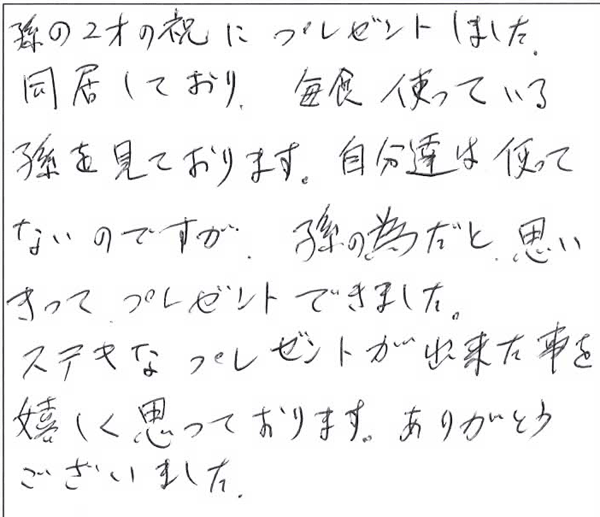 孫の2才の祝にプレゼントしました。
同居しており、毎食使っている
孫を見ております。自分達は使って
ないのですが、孫の為だと、思い
きって、プレゼントできました。
ステキなプレゼントが出来た事を
嬉しく思っております。ありがとう
ございました。